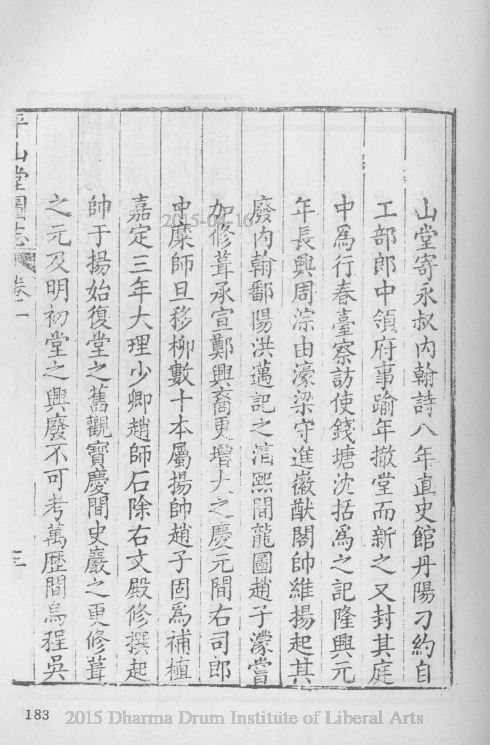 山堂寄永叔内翰詩八年直史館丹陽刁約自
工部郎中領府事踰年撤堂而新之又封其庭
中爲行春臺察訪使錢塘沈括爲之記隆興元
年長興周淙由濠梁守進徽猷閣帥維揚起其
廢内翰鄱陽洪邁記之淳熙間龍圖趙子濛嘗
加修葺承宣鄭興裔更增大之慶元間右司郎
中糜師旦移柳數十本屬揚帥趙子固爲補植
嘉定三年大理少卿趙師石除右文殿修撰起
帥于揚始復堂之舊觀寶慶間史巖之更修葺
之元及明初堂之興廢不可考萬歷間烏程吳
平山堂圖志 卷一 三
2015-04-16
183
2015 Dharma Drum Institute of Liberal Arts